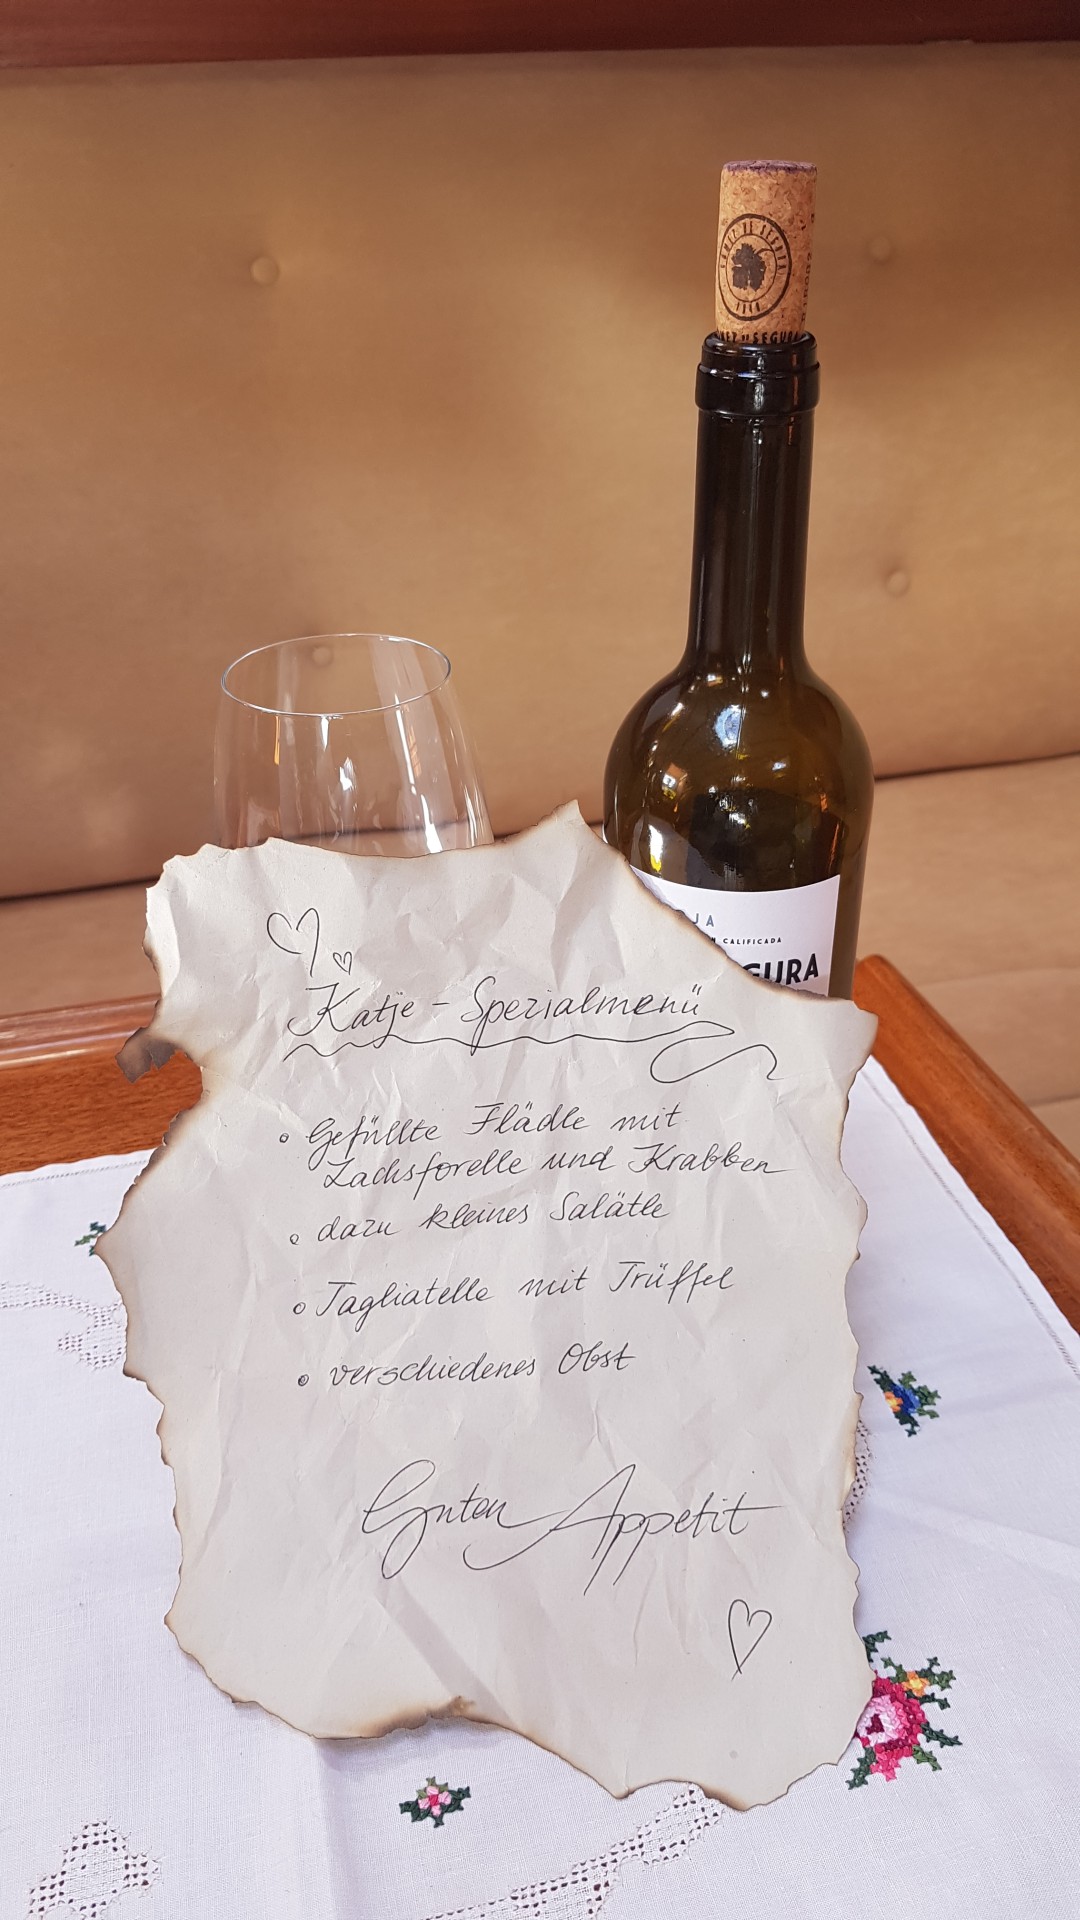 SEGURA
JA
CALIFICADA
GURA
Katje - Spezialmenü
Gefüllte Flädle mit
Lachsforelle und Krabben
dazu kleines Salätle
Tagliatelle mit Trüffel
verschiedenes Obst
Guten Appetit